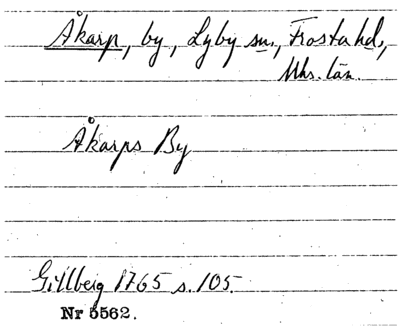 Åkarp, by, Lyby sn., Frosta hd.,
Mhs. län.
Åkarps By
Gillberg 1765 s. 105.
Nr 5562.